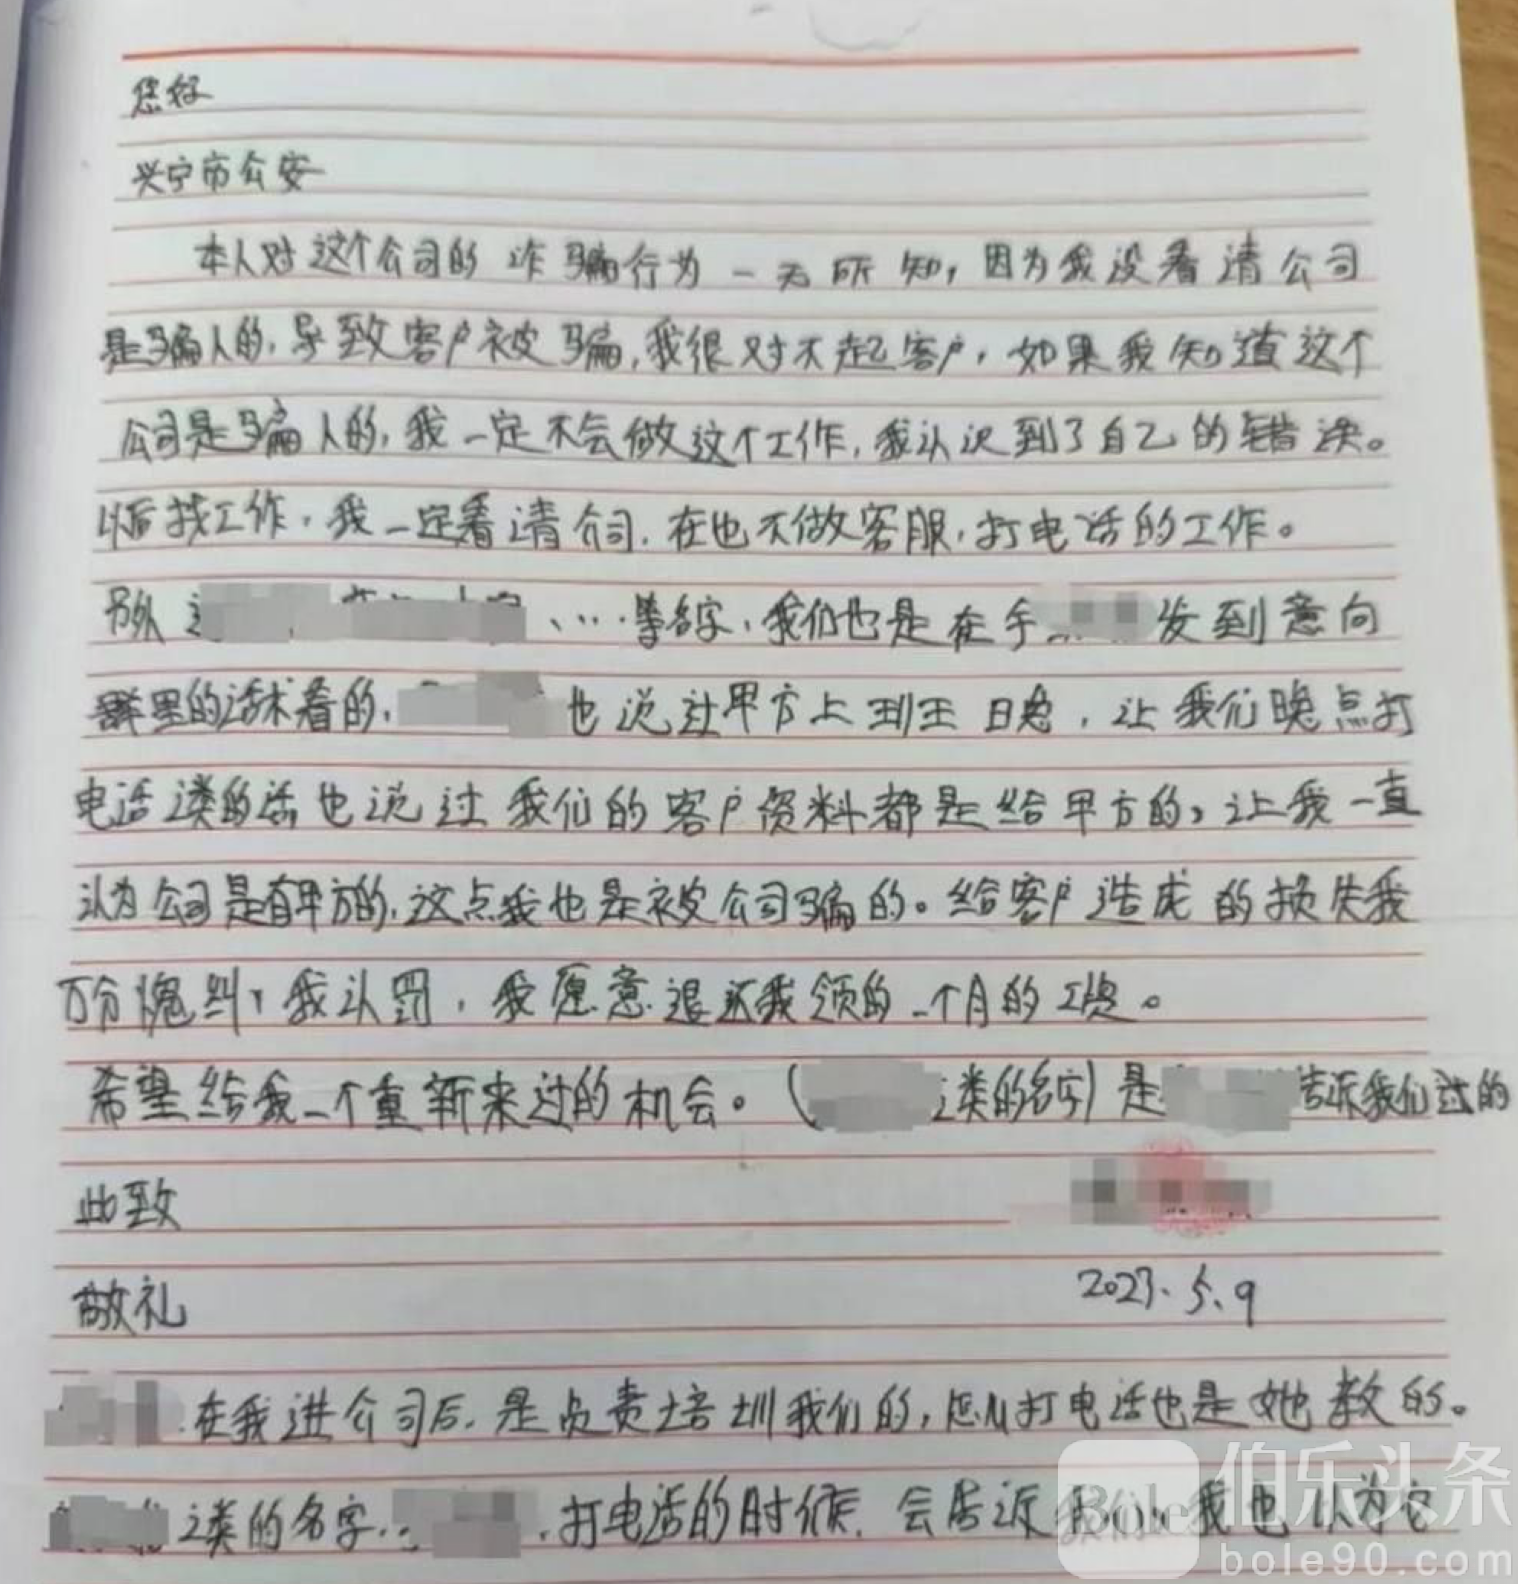 您好
兴宁市公安
本人对这个公司的诈骗行为一无所知，因为我没看请公司
是骗人的，导致客户被骗，我很对不起客户，如果我知道这个
公司是骗人的，我一定不会做这个工作，我认识到了自己的错误。
以后找工作，我一定看请公司，在也不做客服，打电话的工作。
另外 、…等名字，我们也是在手 发到意向
群里的话术看的， 也说过甲方上班 ，让我们晚点打
电话类的话也说过我们的客户资料都是给甲方的，让我一直
认为公司是有甲方的，这点我也是被公司骗的。给客户造成的损失我
万分愧纠，我认罚，我愿意退还我领的一个月的工资。
希望给我一个重新来过的机会。（ 类的名字）是 告诉我们过的
此致
敬礼
2023.5.9
在我进公司后，是负责培训我们的，怎么打电话也是她教的。
之类的名字.. ，打电话的时候，会告诉我们，我也认为它
伯乐头条
Bole
bole90.com